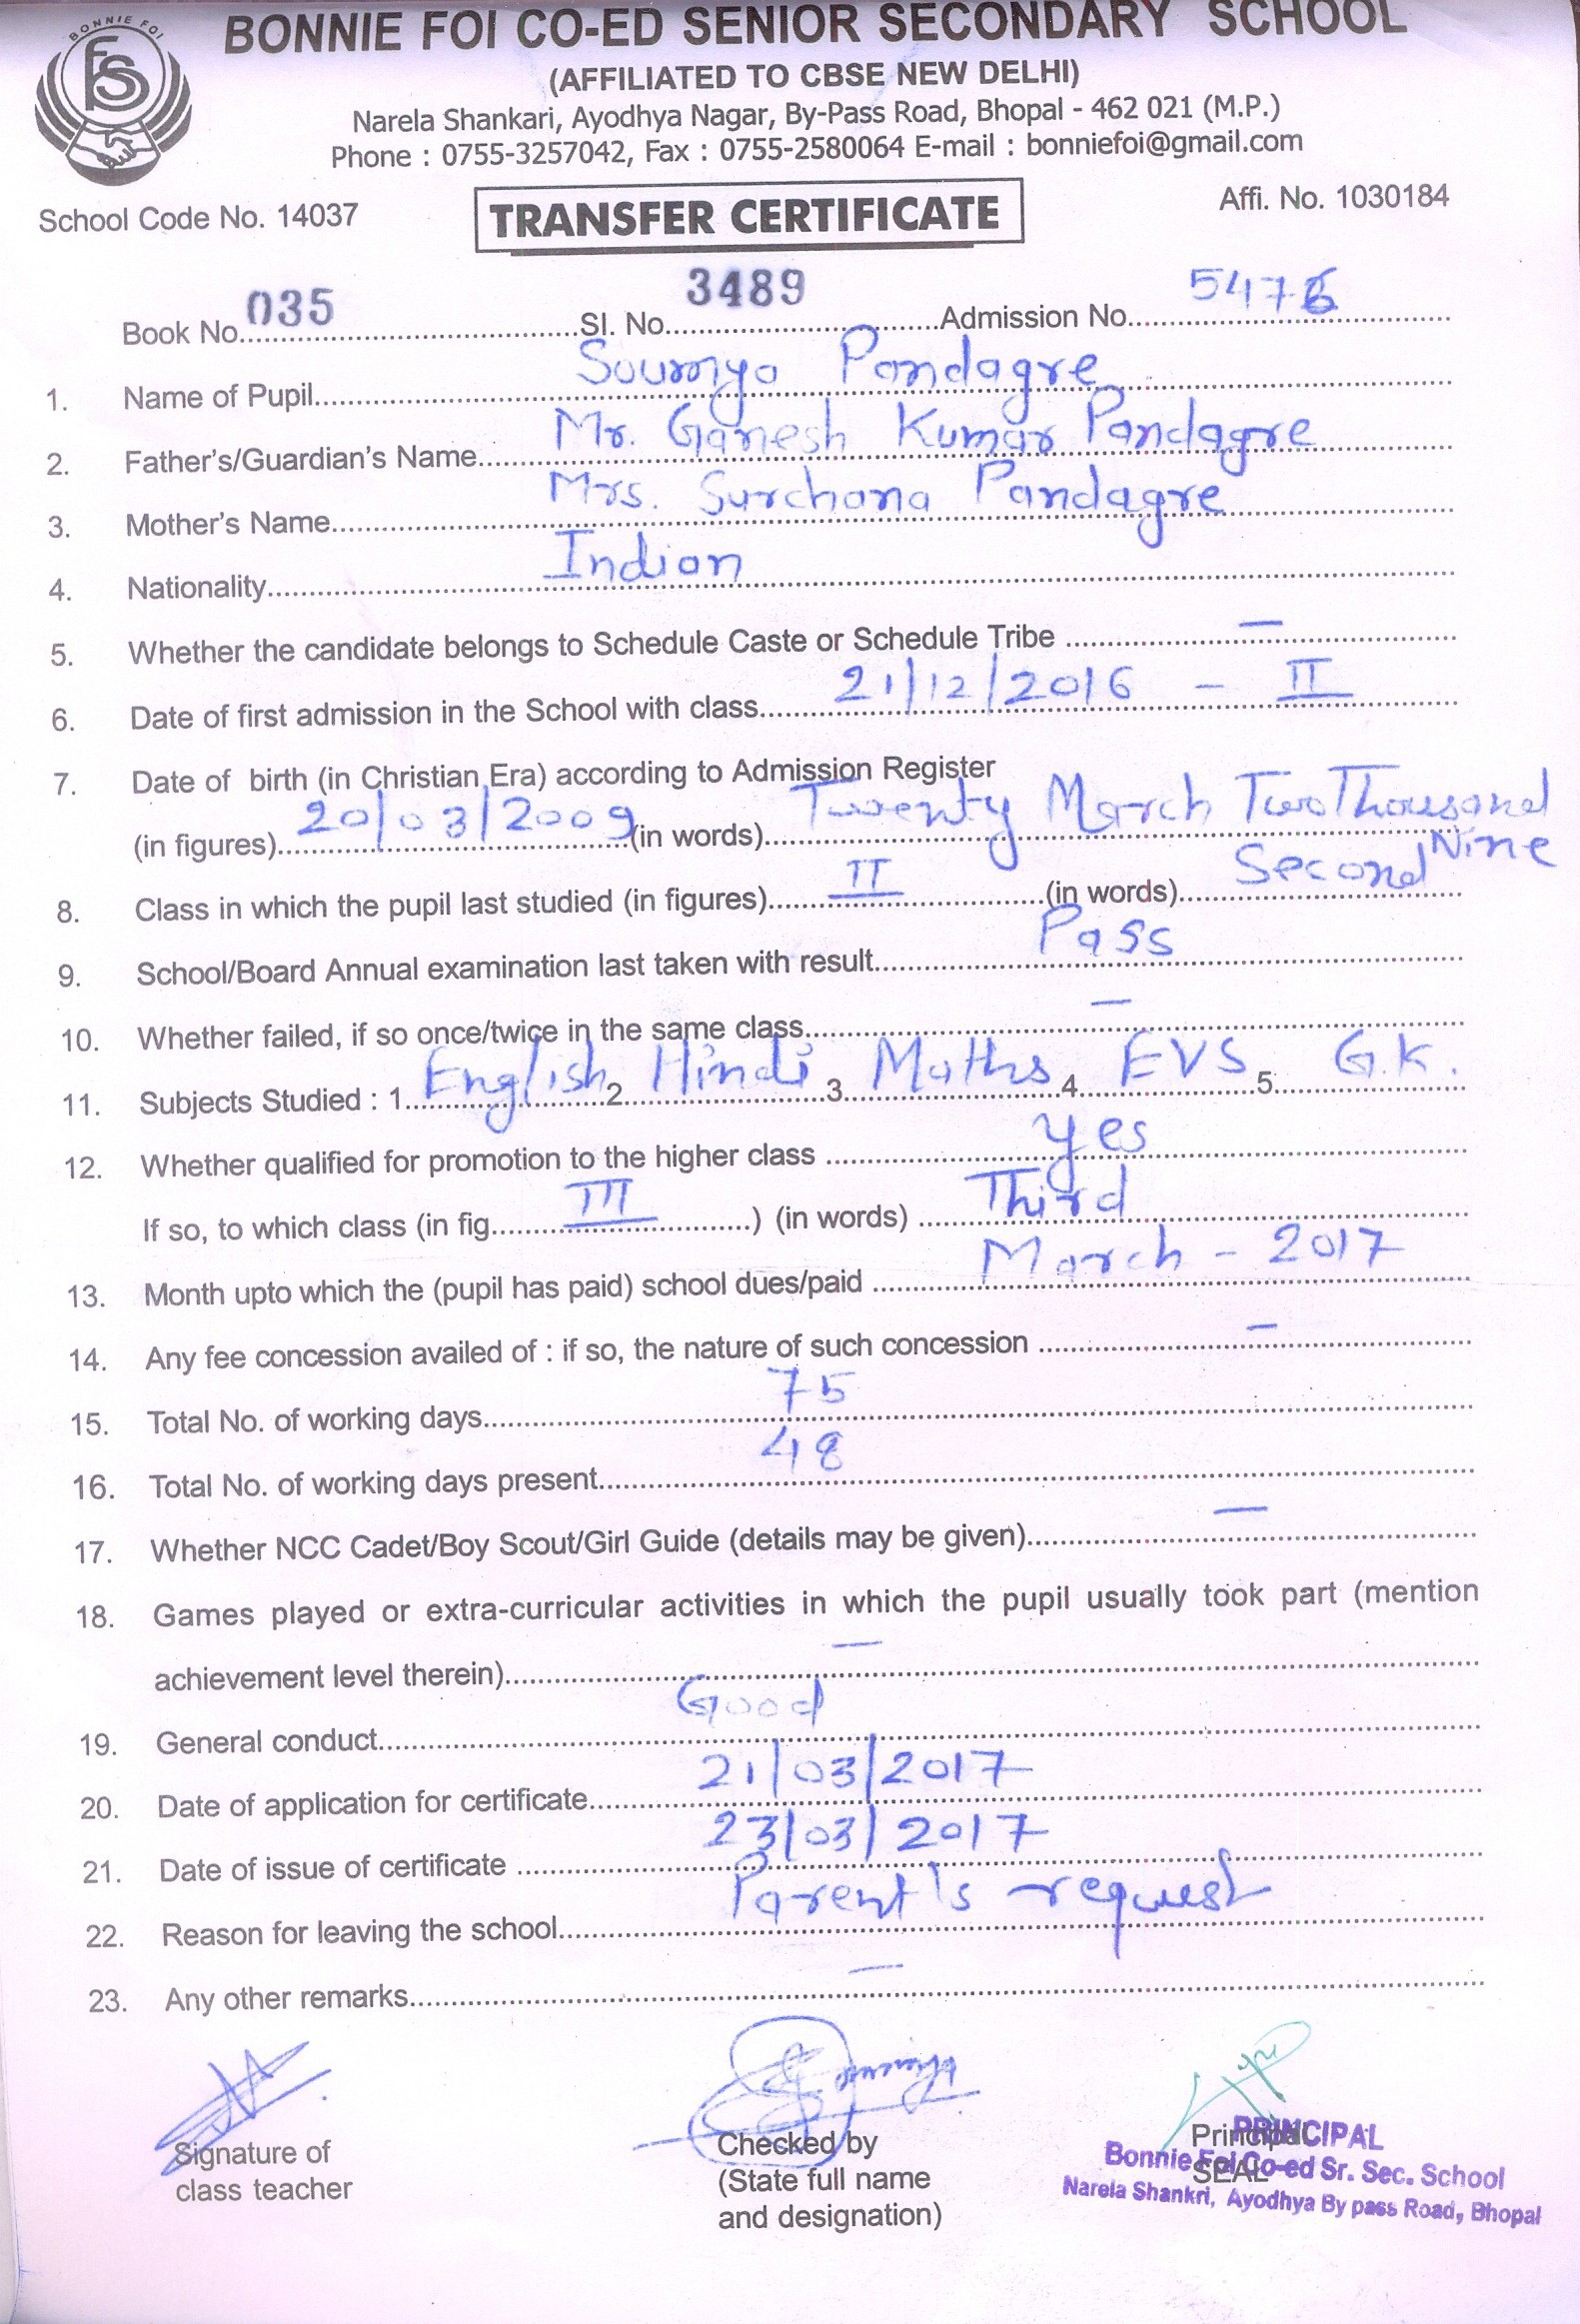 BONNIE FOI
FS
BONNIE FOI CO-ED SENIOR SECONDARY SCHOOL
(AFFILIATED TO CBSE NEW DELHI)
Narela Shankari, Ayodhya Nagar, By-Pass Road, Bhopal - 462 021 (M.P.)
Phone : 0755-3257042, Fax : 0755-2580064 E-mail : bonniefoi@gmail.com
School Code No. 14037
TRANSFER CERTIFICATE
Affi. No. 1030184
Book No. 035 Sl. No. 3489 Admission No. 5476
1. Name of Pupil Soumya Pandagre
2. Father's/Guardian's Name Mr. Ganesh Kumar Pandagre
3. Mother's Name Mrs. Surchana Pandagre
4. Nationality Indian
5. Whether the candidate belongs to Schedule Caste or Schedule Tribe —
6. Date of first admission in the School with class 21/12/2016 - II
7. Date of birth (in Christian Era) according to Admission Register
(in figures) 20/03/2009 (in words) Twenty March Two Thousand
Nine
8. Class in which the pupil last studied (in figures) II (in words) Second
9. School/Board Annual examination last taken with result Pass
10. Whether failed, if so once/twice in the same class —
11. Subjects Studied : 1. English 2 Hindi 3 Maths 4 EVS 5 G.K.
12. Whether qualified for promotion to the higher class Yes
If so, to which class (in fig. III ) (in words) Third
13. Month upto which the (pupil has paid) school dues/paid March - 2017
14. Any fee concession availed of : if so, the nature of such concession —
15. Total No. of working days 75
16. Total No. of working days present 48
17. Whether NCC Cadet/Boy Scout/Girl Guide (details may be given) —
18. Games played or extra-curricular activities in which the pupil usually took part (mention
achievement level therein) —
19. General conduct Good
20. Date of application for certificate 21/03/2017
21. Date of issue of certificate 23/03/2017
22. Reason for leaving the school Parent's request
23. Any other remarks —
Signature of
class teacher
Checked by
(State full name
and designation)
Principal
SEAL
PRINCIPAL
Bonnie Foi Co-ed Sr. Sec. School
Narela Shankri, Ayodhya By pass Road, Bhopal